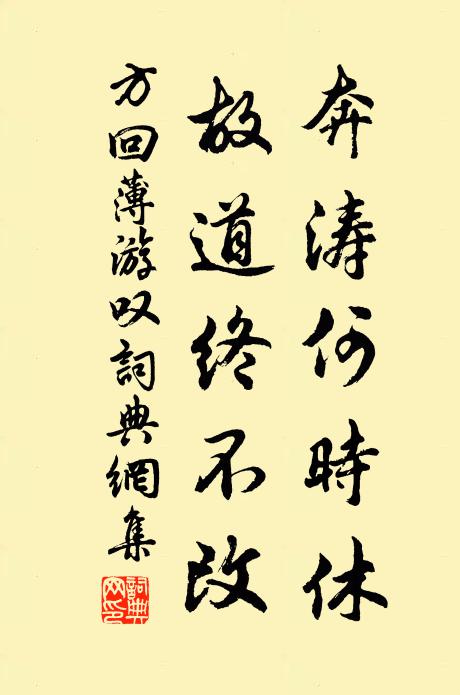 奔涛何時休
故道终不改
方回薄游叹詞典網集
詞典網印